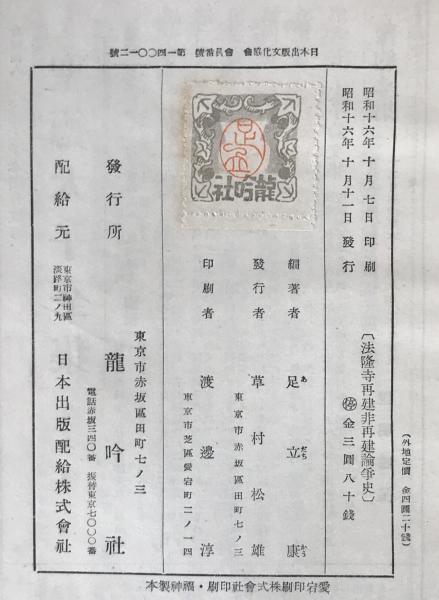 日本出版文化協會　會員番號　第一四〇〇一二號
（外地定價　金四圓二十錢）
〔法隆寺再建非再建論爭史〕
㊞金三圓八十錢
昭和十六年十月七日印刷
昭和十六年十月十一日發行
龍吟社
編著者　足立康
あだちかう
發行者　草村松雄
東京市赤坂區田町七ノ三
印刷者　渡邊淳
東京市芝區愛宕町二ノ一四
東京市赤坂區田町七ノ三
發行所　龍吟社
電話赤坂三四〇番　振替東京七〇〇〇番
配給元　東京市神田區淡路町二ノ九　日本出版配給株式會社
愛宕印刷株式會社印刷・福神製本